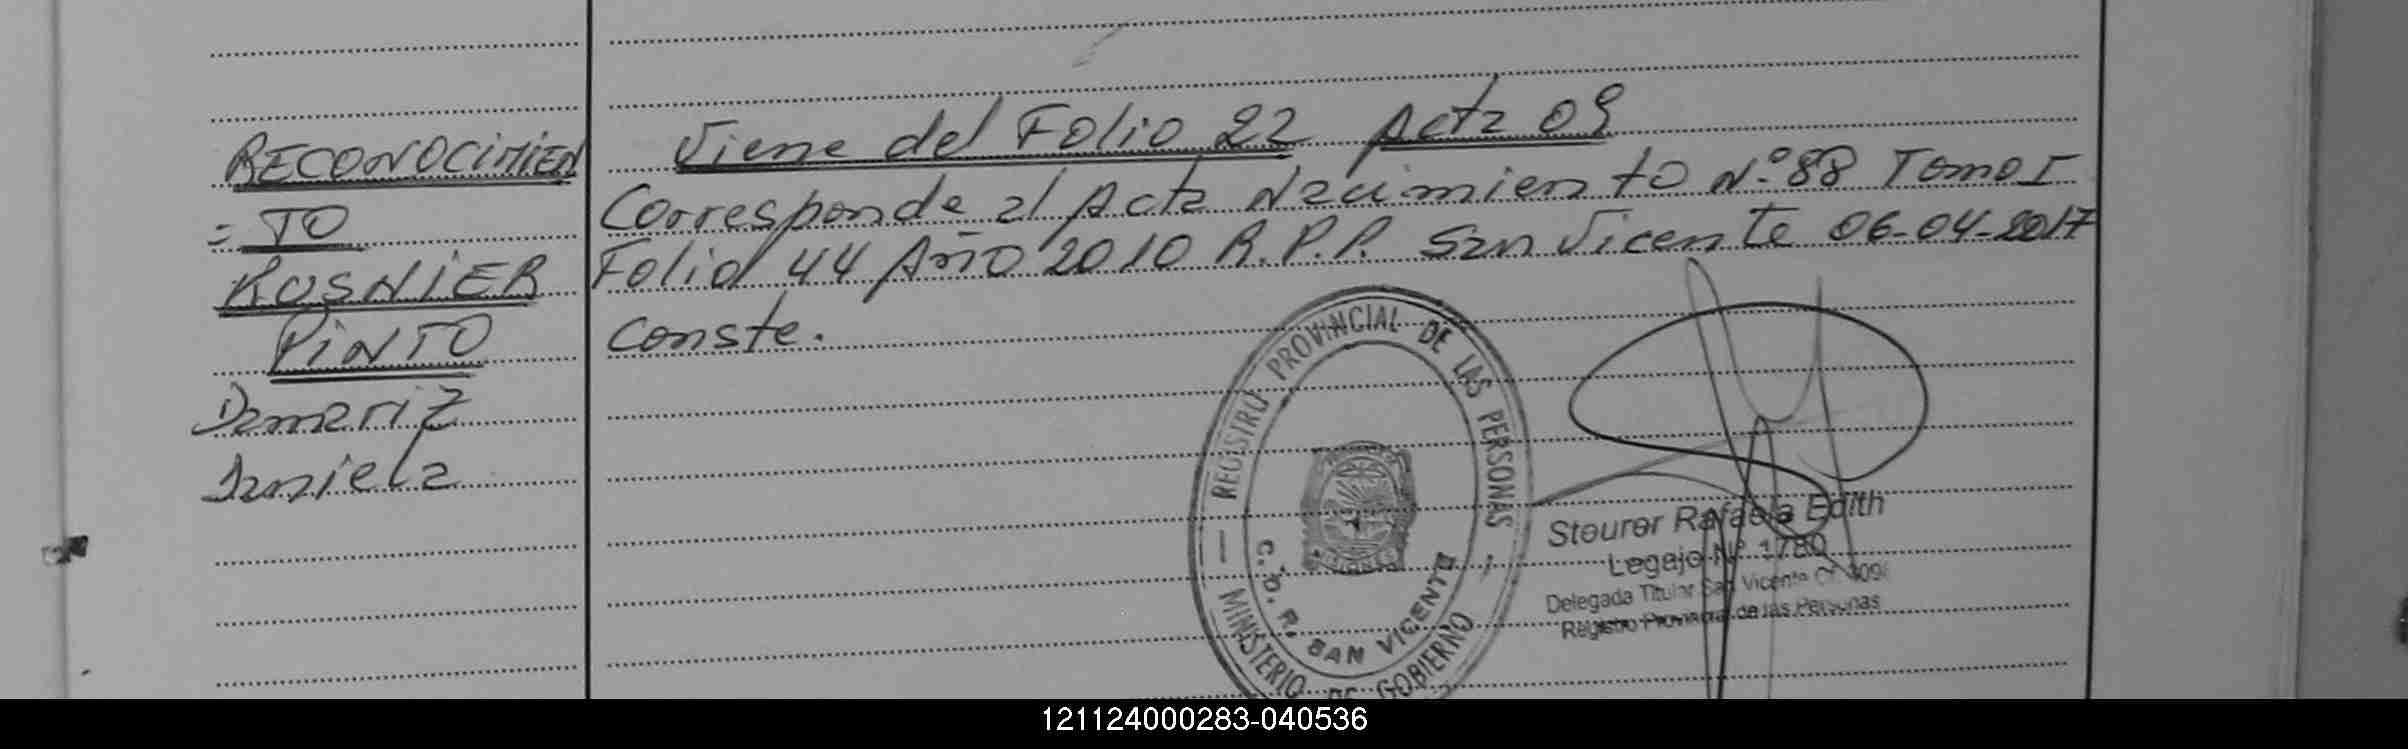 RECONOCIMIEN
= TO
KUSNIER
PINTO
Damariz
Daniela
Viene del Folio 22 Acta 09
Corresponde al Acta Nacimiento N° 88 Tomo I
Folio 44 Año 2010 R.P.P. San Vicente 06-04-2017
Conste.
REGISTRO PROVINCIAL DE LAS PERSONAS
C.D.R. SAN VICENTE
MINISTERIO DE GOBIERNO
MISIONES
Rafaela Edith
Legajo N° 1780
Delegada Titular San Vicente
Registro Provincial de las Personas
121124000283-040536